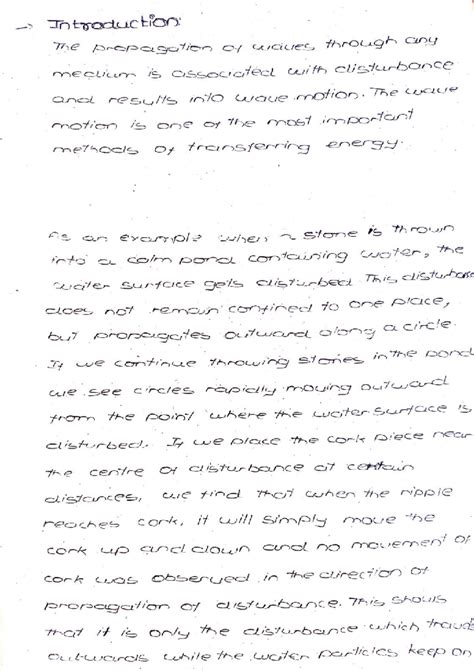 → Introduction:
The propagation of waves, through any
medium is associated with disturbance
and results into wave motion. The wave
motion is one of the most important
methods of transferring energy.
As an example when a stone is thrown
into a calm pond containing water, the
water surface gets disturbed. This disturbance
does not remain confined to one place,
but propagates outward along a circle.
If we continue throwing stones in the pond
we see circles rapidly moving outward
from the point where the water surface is
disturbed. If we place the cork piece near
the centre of disturbance at certain
distances, we find that when the ripple
reaches cork, it will simply move the
cork up and down and no movement of
cork was observed in the direction of
propagation of disturbance. This shows
that it is only the disturbance which travels
outwards while the water particles keep on